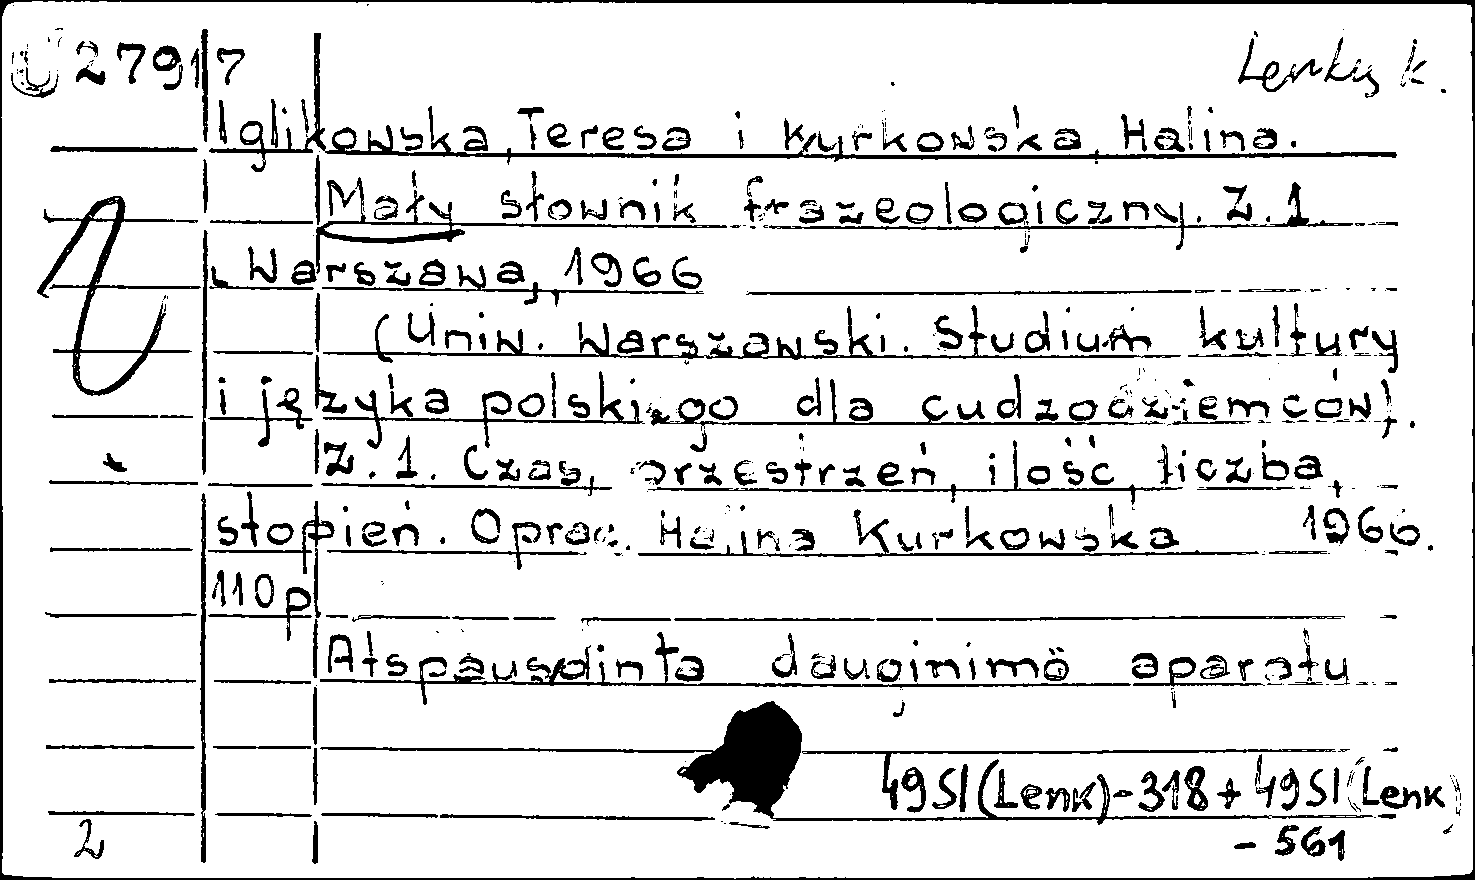 U27917
Lenkų k.
Iglikowska, Teresa i Kurkowska, Halina.
Mały słownik frazeologiczny. Z.1.
Warszawa, 1966
(Uniw. Warszawski. Studium kultury
i języka polskiego dla cudzoziemców).
Z.1. Czas, przestrzeń, ilość, liczba,
stopień. Oprac. Halina Kurkowska 1966.
110p
Atspausdinta dauginimo aparatu
49Sl(Lenk)-318 + 49Sl(Lenk)
- 561
2